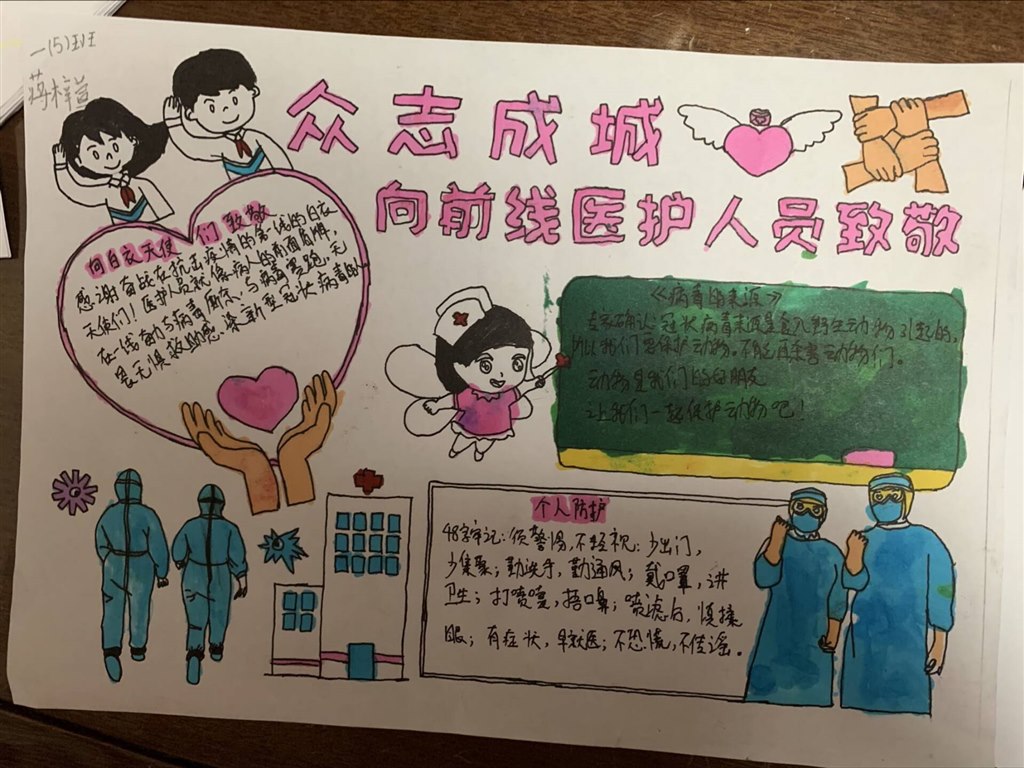 一(5)班
蒋梓萱
众志成城
向前线医护人员致敬
向白衣天使们 致敬
感谢奋战在抗击疫情的第一线的白衣
天使们！医护人员就像病人的前面盾牌，
在一线前与病毒厮杀；与病毒赛跑，无
畏无惧 救助感染新型冠状病毒的
《病毒的来源》
专家确认冠状病毒来源是食入野生动物引起的，
所以我们要保护动物。不能再杀害动物们。
动物是我们的好朋友
让我们一起保护动物吧！
个人防护
48字牢记：须警惕，不轻视：少出门，
少集聚；勤洗手，勤通风；戴口罩，讲
卫生；打喷嚏，捂口鼻；喷滤后，慎揉
眼；有症状，早就医；不恐慌，不传谣。